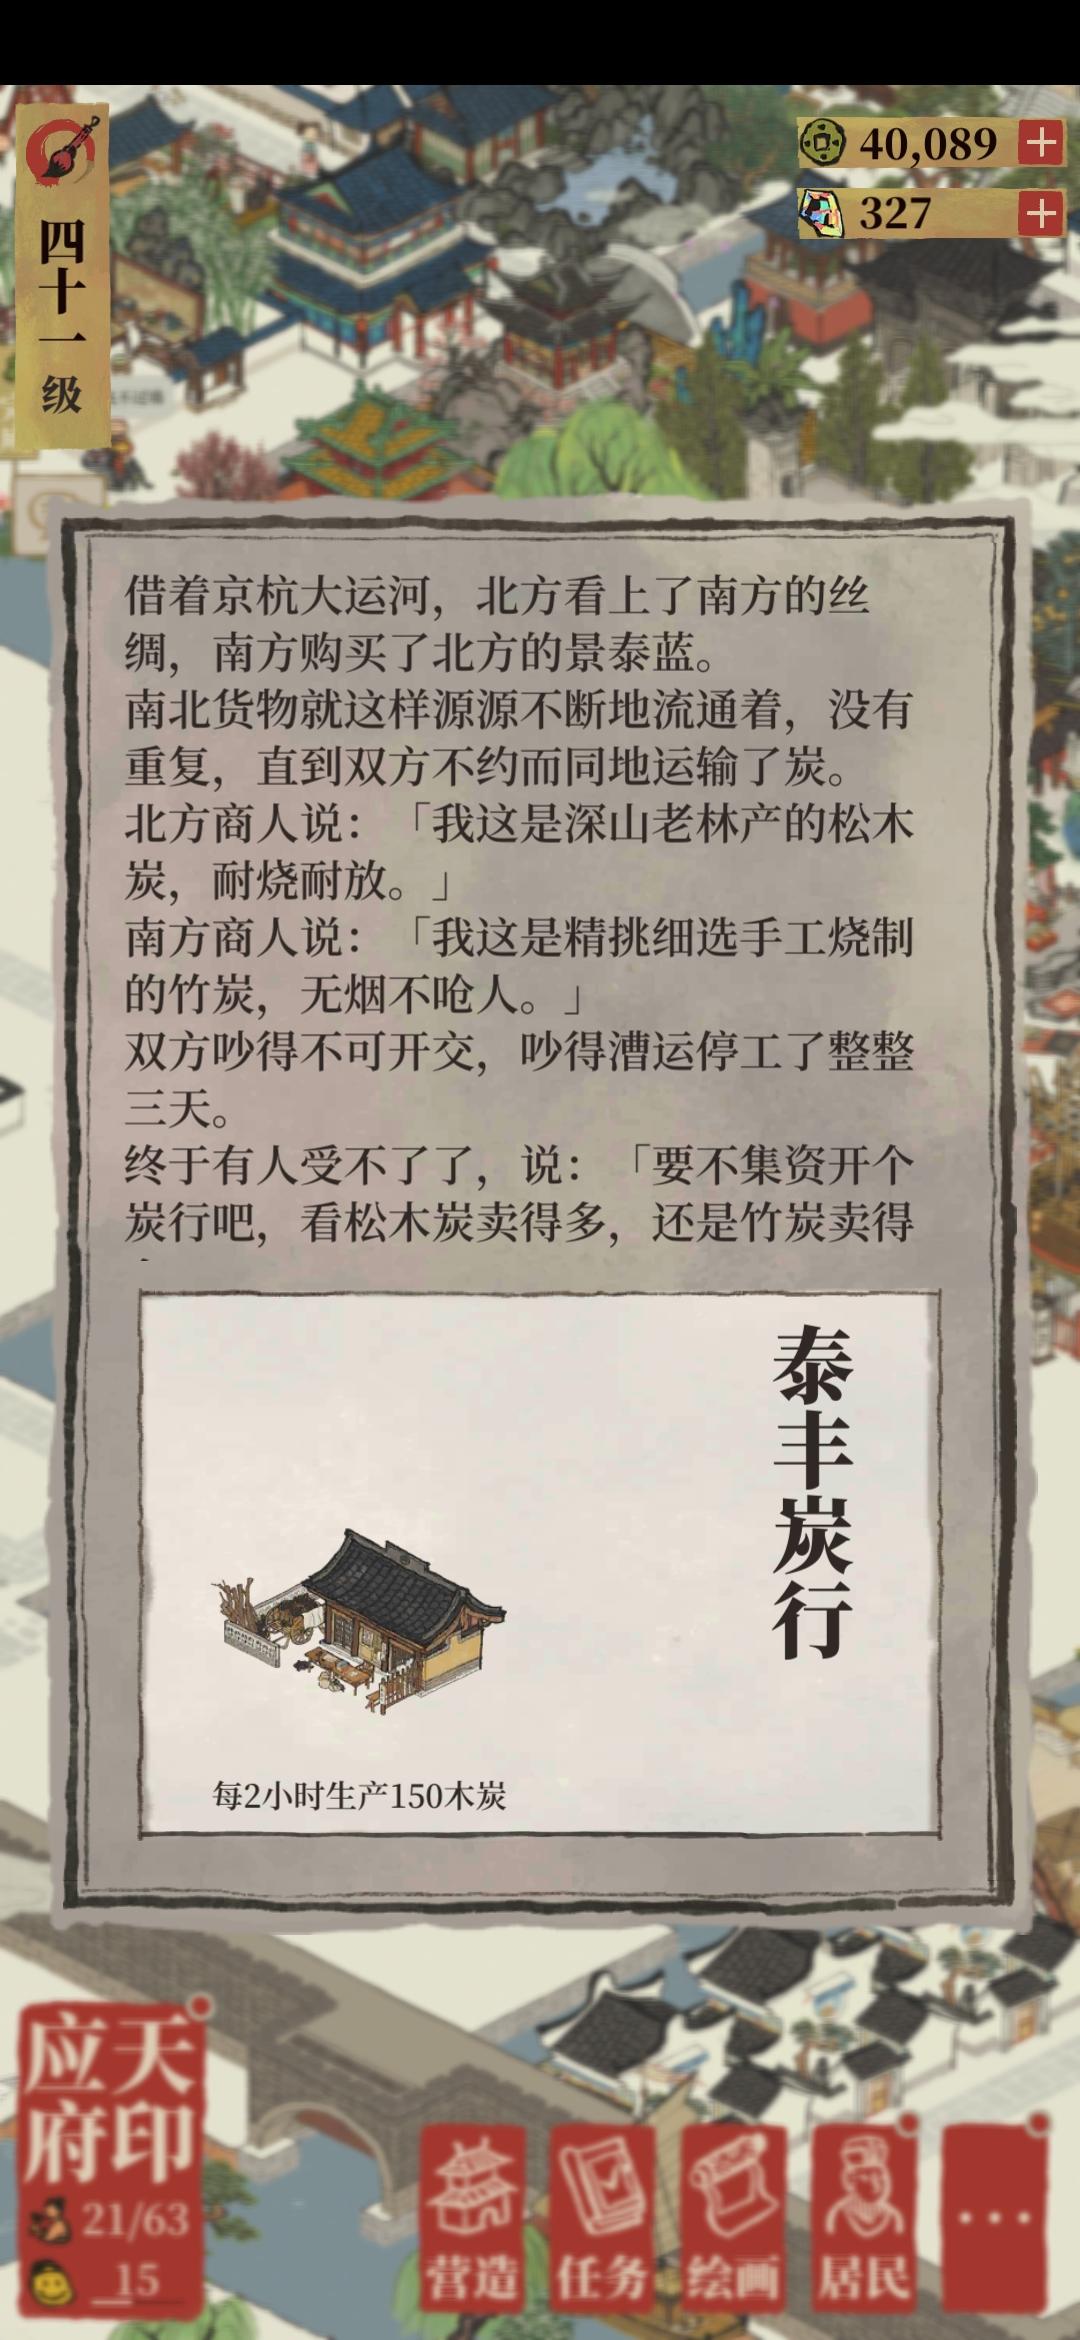 四十一级
40,089
327
借着京杭大运河，北方看上了南方的丝
绸，南方购买了北方的景泰蓝。
南北货物就这样源源不断地流通着，没有
重复，直到双方不约而同地运输了炭。
北方商人说：「我这是深山老林产的松木
炭，耐烧耐放。」
南方商人说：「我这是精挑细选手工烧制
的竹炭，无烟不呛人。」
双方吵得不可开交，吵得漕运停工了整整
三天。
终于有人受不了了，说：「要不集资开个
炭行吧，看松木炭卖得多，还是竹炭卖得
泰丰炭行
每2小时生产150木炭
应天
府印
21/63
15
营造
任务
绘画
居民
...